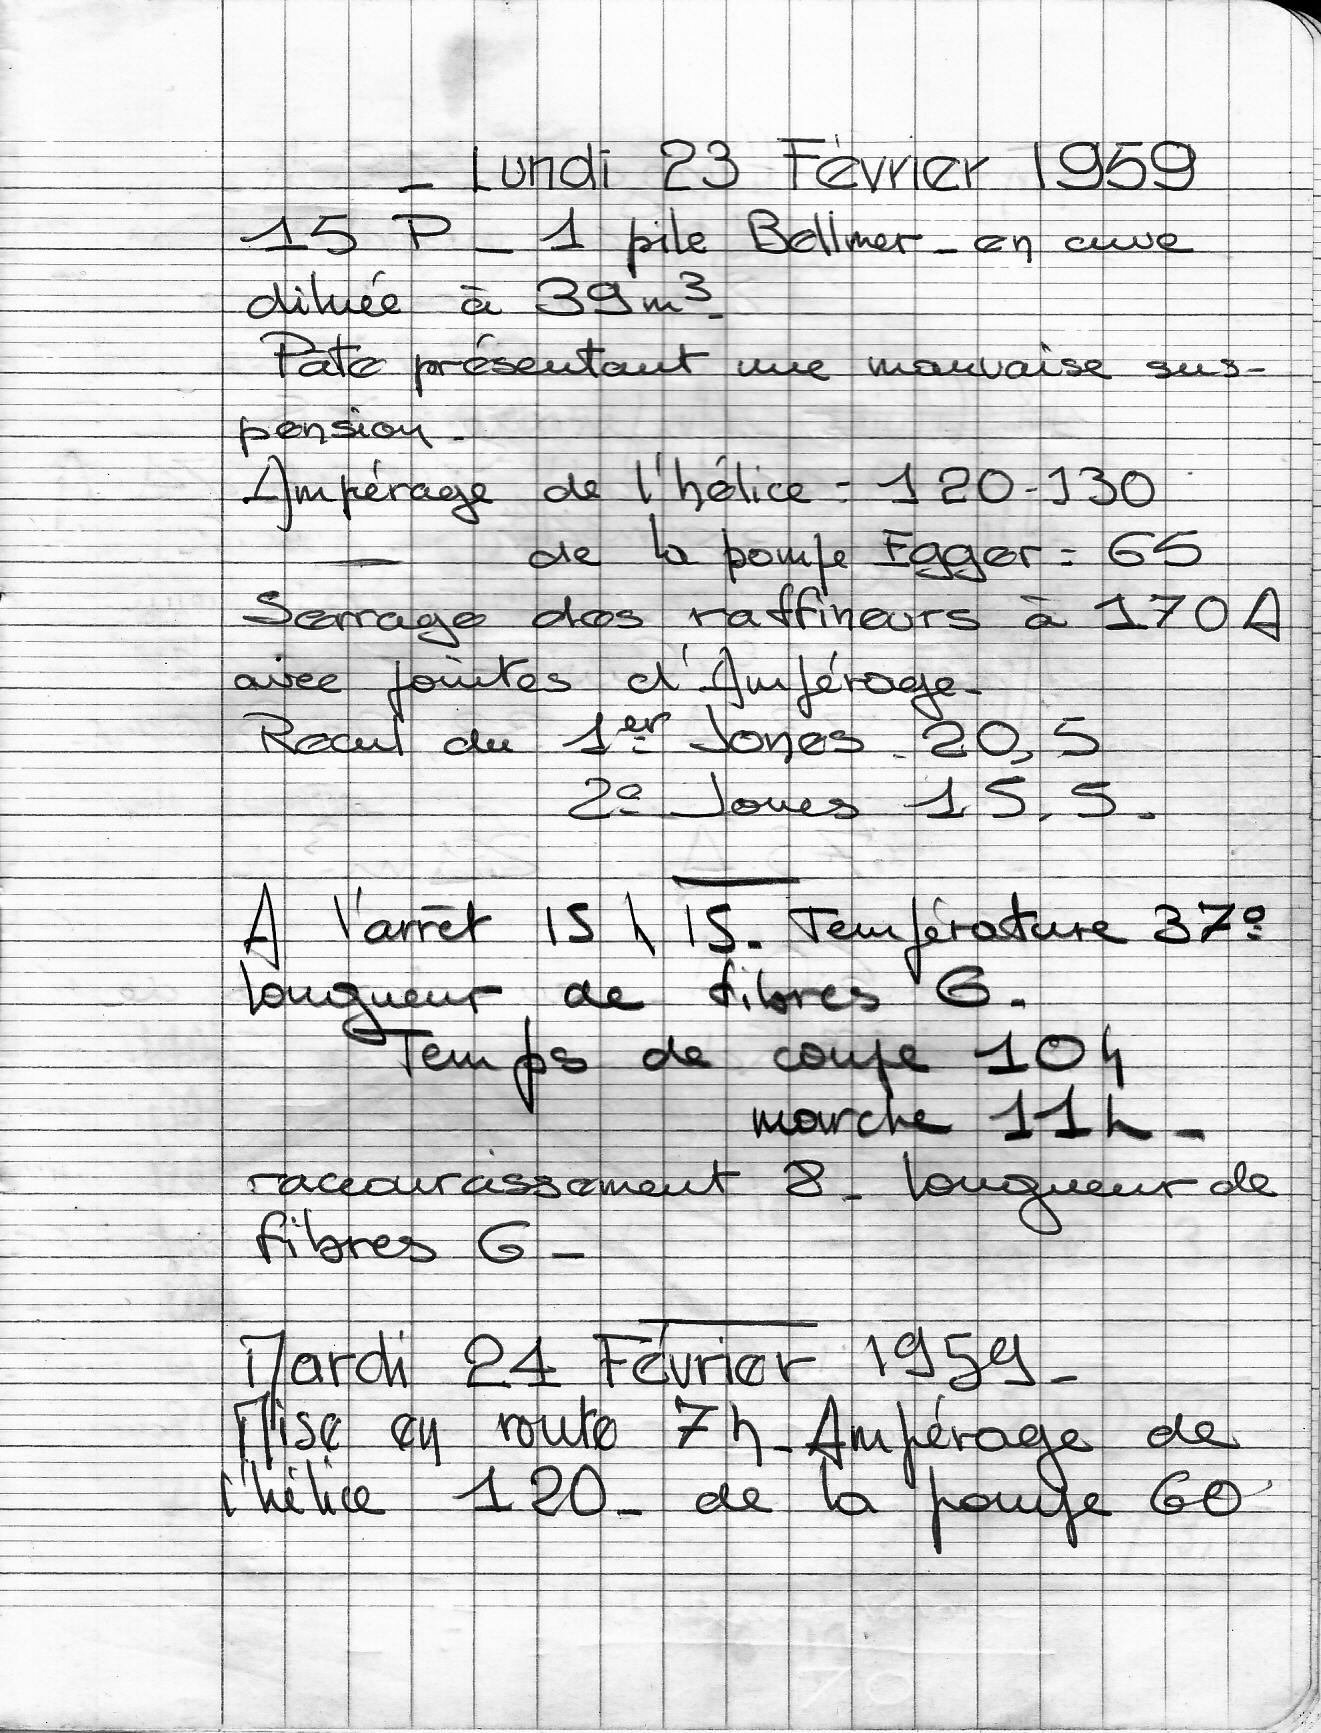 _ Lundi 23 Février 1959
15 P _ 1 pile Bellmer _ en cuve
diluée à 39 m³_
Pate présentant une mauvaise sus-
pension_
Ampérage de l'hélice = 120-130
— de la pompe Egger = 65
Serrage des raffineurs à 170 A
avec pointes d'Ampérage_
Recul du 1er Jones 20,5
2e Jones 15,5.
A l'arrêt 15 h 15_ Température 37°
longueur de fibres 6_
Temps de coupe 10h
marche 11h_
raccourcissement 8_ longueur de
fibres 6_
Mardi 24 Février 1959_
Mise en route 7h_ Ampérage de
l'hélice 120_ de la pompe 60